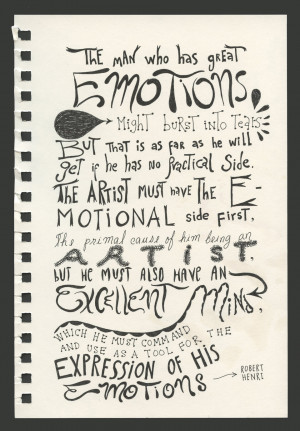 THE MAN WHO HAS GREAT
EMOTIONS,
MIGHT BURST INTO TEARS
BUT THAT IS AS FAR AS HE WILL
get IF HE HAS NO PRACTICAL SIDE.
THE ARTIST MUST HAVE THE E-
MOTIONAL side FIRST,
The primal cause of him being an
ARTIST.
BUT HE MUST ALSO HAVE AN
EXCELLENT MIND,
WHICH HE MUST COMMAND
AND USE AS A TOOL FOR THE
EXPRESSION OF HIS
EMOTIONS
ROBERT
HENRI